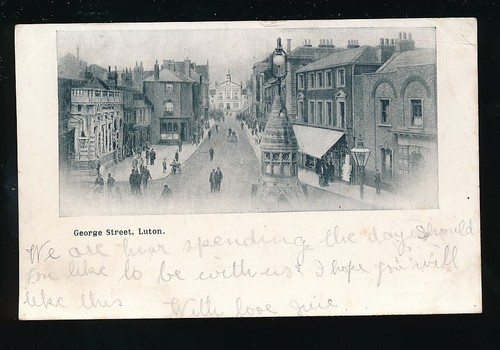 George Street, Luton.
We are hear spending the day Should
you like to be with us. I hope you will
like this With love